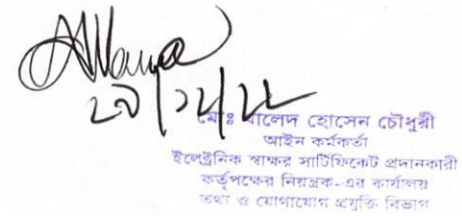 ২৯/১২/২২
মোঃ খালেদ হোসেন চৌধুরী
আইন কর্মকর্তা
ইলেক্ট্রনিক স্বাক্ষর সার্টিফিকেট প্রদানকারী
কর্তৃপক্ষের নিয়ন্ত্রক-এর কার্যালয়
তথ্য ও যোগাযোগ প্রযুক্তি বিভাগ